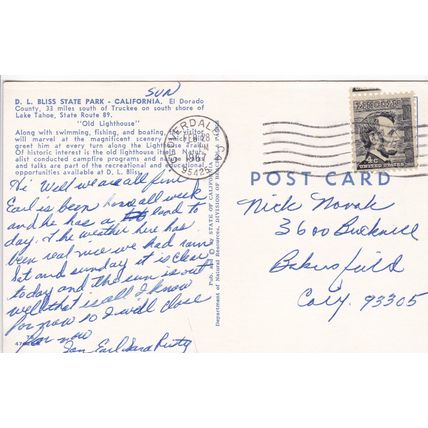 Sun
D. L. BLISS STATE PARK - CALIFORNIA, El Dorado
County, 33 miles south of Truckee on south shore of
Lake Tahoe, State Route 89.
"Old Lighthouse"
Along with swimming, fishing, and boating, the visitor
will marvel at the magnificent scenery which will
greet him at every turn along the Lighthouse Trail.
Of historic interest is the old lighthouse itself. Natur-
alist conducted campfire programs and nature
and talks are part of the recreational and educational
opportunities available at D. L. Bliss.
Hi Well we are all fine
Earl is been home all week
and he has a load to
day. The weather here has
been real nice we had rain
sat and sunday it is clear
today and the sun is out
well that is all I know
for now so I will close
for now
Earl Sara Rusty
Pub. and © by STATE OF CALIFORNIA
Department of Natural Resources, DIVISION OF BEACHES AND PARKS
CLOVERDALE, CA
FEB 28
1967
95425
LINCOLN
4¢
UNITED STATES
POST CARD
Nick Novak
3600 Bucknell
Bakersfield
Caly. 93305